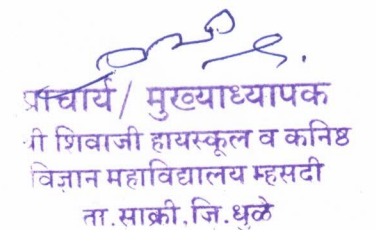 प्राचार्य / मुख्याध्यापक
श्री शिवाजी हायस्कूल व कनिष्ठ
विज्ञान महाविद्यालय म्हसदी
ता. साक्री, जि. धुळे